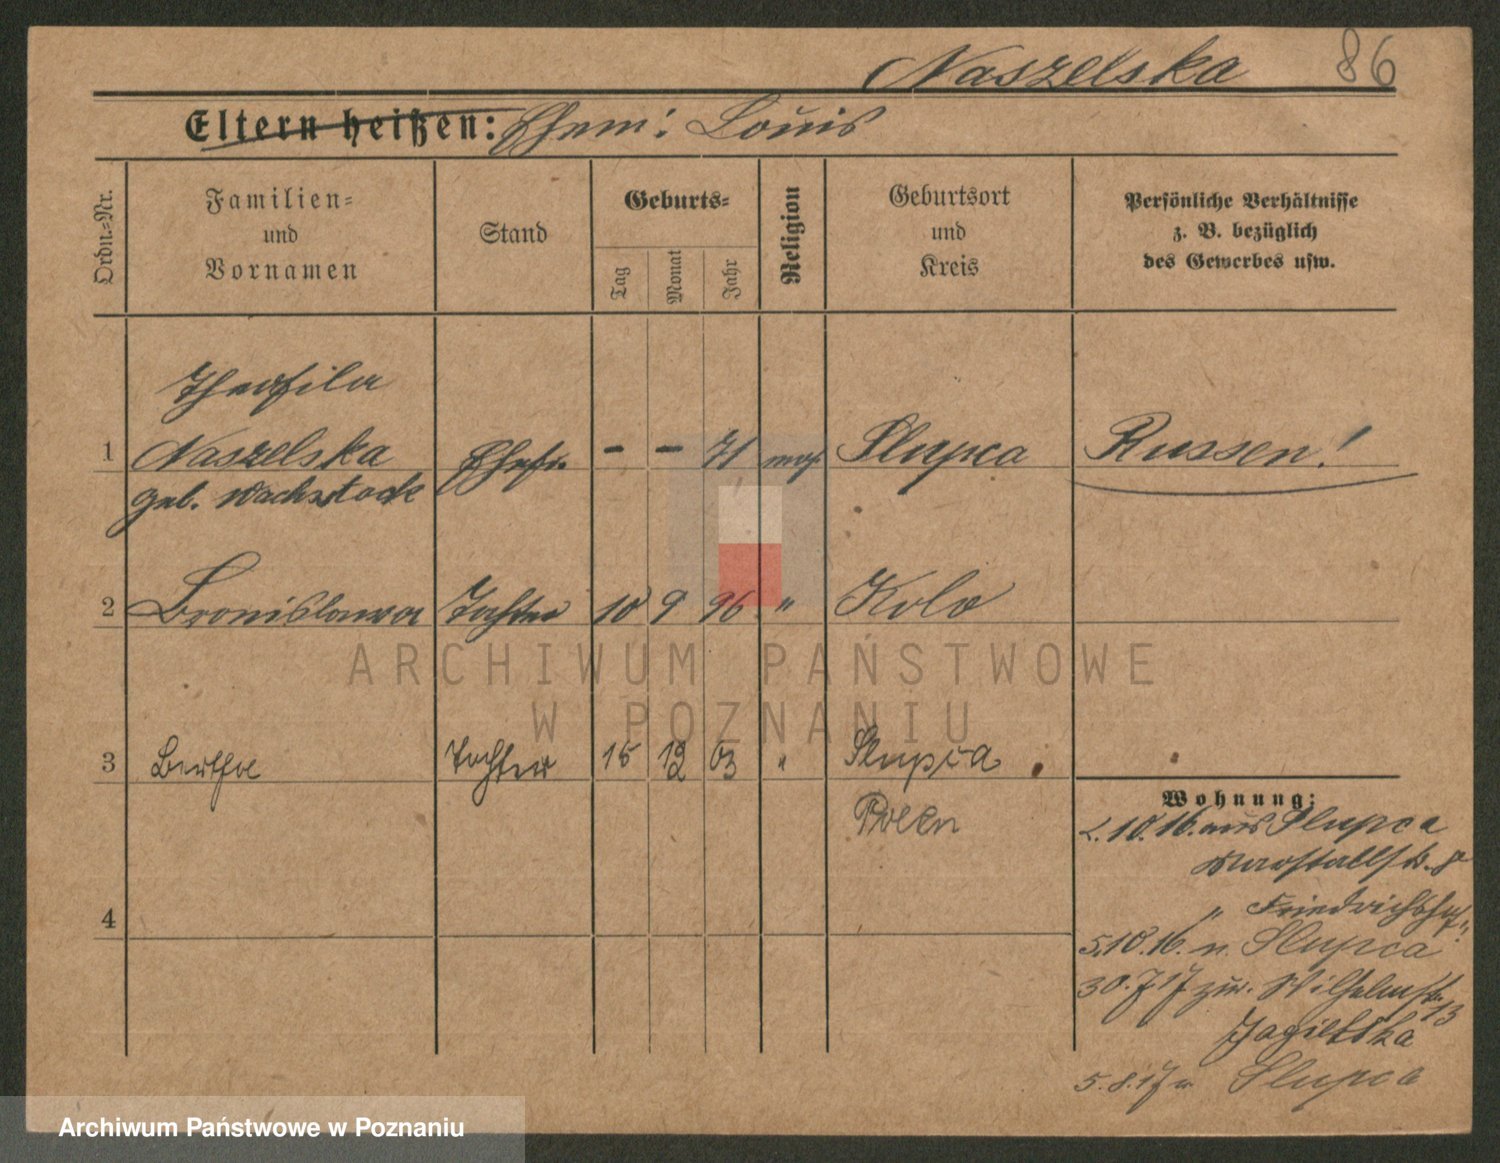 Naszelska 86
Eltern heißen: Ehem: Louis
Ordn.-Nr.
Familien-
und
Vornamen
Stand
Geburts-
Tag
Monat
Jahr
Religion
Geburtsort
und
Kreis
Persönliche Verhältnisse
z. B. bezüglich
des Gewerbes usw.
Theofila
1 Naszelska Ehefr. - - 71 mos. Slupca Russen!
geb. Wachstock
2 Bronislawa Tochter 10 9 96 " Kolo
ARCHIWUM PAŃSTWOWE
W POZNANIU
3 Bertha Tochter 15 12 03 " Slupca
Polen
Wohnung:
2.10.16. aus Slupca
8
" Friedrichshof"
5.10.16. n. Slupca
30.7.17 zur. Wilhelmstr. 13
Jagielska
5.8.17 n Slupca
4
Archiwum Państwowe w Poznaniu